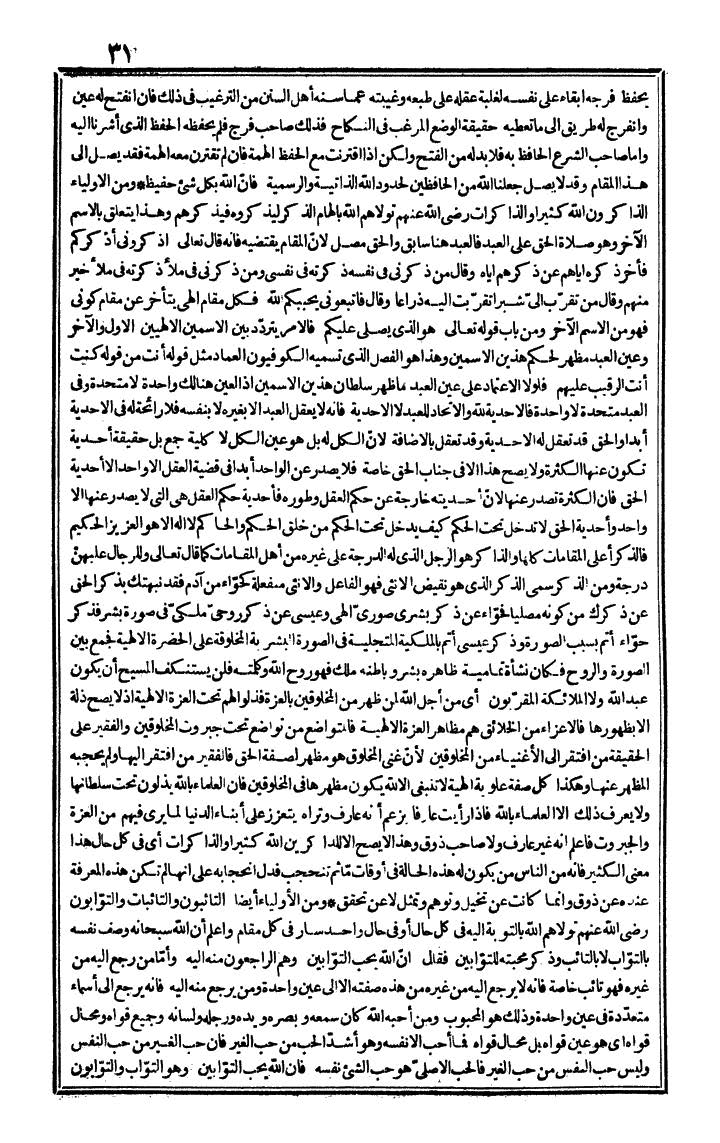 ٣١
يحفظ فرجه ابقاء على نفسه لغلبة عقله على طبعه وغيبته عما سنه أهل السنن من الترغيب فى ذلك فان انفتح له عين
وانفرج له طريق الى ما تعطيه حقيقة الوضع المرغب فى النكاح فذلك صاحب فرج فلم يحفظه الحفظ الذى أشرنا اليه
واما صاحب الشرع الحافظ به فلا بد له من الفتح ولكن اذا اقترنت مع الحفظ الهمة فان لم تقترن معه الهمة فقد يصل الى
هذا المقام وقد لا يصل جعلنا الله من الحافظين لحدود الله الذاتية والرسمية فانّ الله بكل شئ حفيظ * ومن الاولياء
الذاكرون الله كثيرا والذاكرات رضى الله عنهم تولاهم الله بالهام الذكر ليذكروه فيذكرهم وهذا يتعلق بالاسم
الآخر وهو صلاة الحق على العبد فالعبد هنا سابق والحق مصل لانّ المقام يقتضيه فانه قال تعالى اذكرونى أذكركم
فأخر ذكره اياهم عن ذكرهم اياه وقال من ذكرنى فى نفسه ذكرته فى نفسى ومن ذكرنى فى ملأ ذكرته فى ملأ خير
منهم وقال من تقرّب الىّ شبرا تقربت اليه ذراعا وقال فاتبعونى يحببكم الله فكل مقام الهى يتأخر عن مقام كونى
فهو من الاسم الآخر ومن باب قوله تعالى هو الذى يصلى عليكم فالامر يتردّد بين الاسمين الالهيين الاول والآخر
وعين العبد مظهر لحكم هذين الاسمين وهذا هو الفصل الذى تسميه الكوفيون العماد مثل قوله أنت من قوله كنت
أنت الرقيب عليهم فلولا الاعتماد على عين العبد ما ظهر سلطان هذين الاسمين اذ العين هنالك واحدة لا متحدة وفى
العبد متحدة لا واحدة فالاحدية لله والاتحاد للعبد لا الاحدية فانه لا يعقل العبد الا بغيره لا بنفسه فلا رائحة له فى الاحدية
أبدا والحق قد تعقل له الاحدية وقد تعقل بالاضافة لانّ الكل له بل هو عين الكل لا كلية جمع بل حقيقة أحدية
تكون عنها الكثرة ولا يصح هذا الا فى جناب الحق خاصة فلا يصدر عن الواحد أبدا فى قضية العقل الا واحد الا أحدية
الحق فان الكثرة تصدر عنها لانّ أحديته خارجة عن حكم العقل وطوره فأحدية حكم العقل هى التى لا يصدر عنها الا
واحد وأحدية الحق لا تدخل تحت الحكم كيف يدخل تحت الحكم من خلق الحكم والحاكم لا اله الا هو العزيز الحكيم
فالذكر أعلى المقامات كلها والذاكر هو الرجل الذى له الدرجة على غيره من أهل المقامات كما قال تعالى وللرجال عليهنّ
درجة ومن الذكر سمى الذكر الذى هو نقيض الانثى فهو الفاعل والانثى منفعلة كحوّاء من آدم فقد نبهتك بذكر الحق
عن ذكرك من كونه مصليا فحوّاء عن ذكر بشرى صورىّ الهى وعيسى عن ذكر روحىّ ملكىّ فى صورة بشر فذكر
حوّاء أتم بسبب الصورة وذكر عيسى أتم بالملكية المتجلية فى الصورة البشرية المخلوقة على الحضرة الالهية فجمع بين
الصورة والروح فكان نشأة تمامية ظاهره بشر وباطنه ملك فهو روح الله وكلمته فلن يستنكف المسيح أن يكون
عبدا لله ولا الملائكة المقرّبون أى من أجل الله لمن ظهر من المخلوقين بالعزة فذلوا لهم تحت العزة الالهية اذ لا يصح ذلة
الا بظهورها فالاعزاء من الخلائق هم مظاهر العزة الالهية فالمتواضع من تواضع تحت جبروت المخلوقين والفقير على
الحقيقة من افتقر الى الأغنياء من المخلوقين لأنّ غنى المخلوق هو مظهر لصفة الحق فالفقير من افتقر اليها ولم يحجبه
المظهر عنها وهكذا كل صفة علوية الهية لا تنبغى الا لله يكون مظهرها فى المخلوقين فان العلماء بالله يذلون تحت سلطانها
ولا يعرف ذلك الا العلماء بالله فاذا رأيت عارفا يزعم أنه عارف وتراه يتعزز على أبناء الدنيا لما يرى فيهم من العزة
والجبروت فاعلم انه غير عارف ولا صاحب ذوق وهذا لا يصح الا للذاكرين الله كثيرا والذاكرات أى فى كل حال هذا
معنى الكثير فانه من الناس من يكون له هذه الحالة فى أوقات مّا ثم تنحجب فدل انحجابه على انها لم تكن هذه المعرفة
عنده عن ذوق وانما كانت عن تخيل وتوهم وتمثل لا عن تحقق * ومن الأولياء أيضا التائبون والتائبات والتوّابون
رضى الله عنهم تولاهم الله بالتوبة اليه فى كل حال أو فى حال واحد سار فى كل مقام واعلم أن الله سبحانه وصف نفسه
بالتوّاب لا بالتائب وذكر محبته للتوّابين فقال انّ الله يحب التوّابين وهم الراجعون منه اليه وأمّا من رجع اليه من
غيره فهو تائب خاصة فانه لا يرجع اليه من غيره من هذه صفته الا الى عين واحدة ومن يرجع منه اليه فانه يرجع الى أسماء
متعدّدة فى عين واحدة وذلك هو المحبوب ومن أحبه الله كان سمعه وبصره ويده ورجله ولسانه وجميع قواه ومحال
قواه اى هو عين قواه بل محال قواه فما أحب الا نفسه وهو أشدّ الحب من حب الغير فان حب الغير من حب النفس
وليس حب النفس من حب الغير فالحب الاصلىّ هو حب الشئ نفسه فان الله يحب التوّابين وهو التوّاب والتوّابون